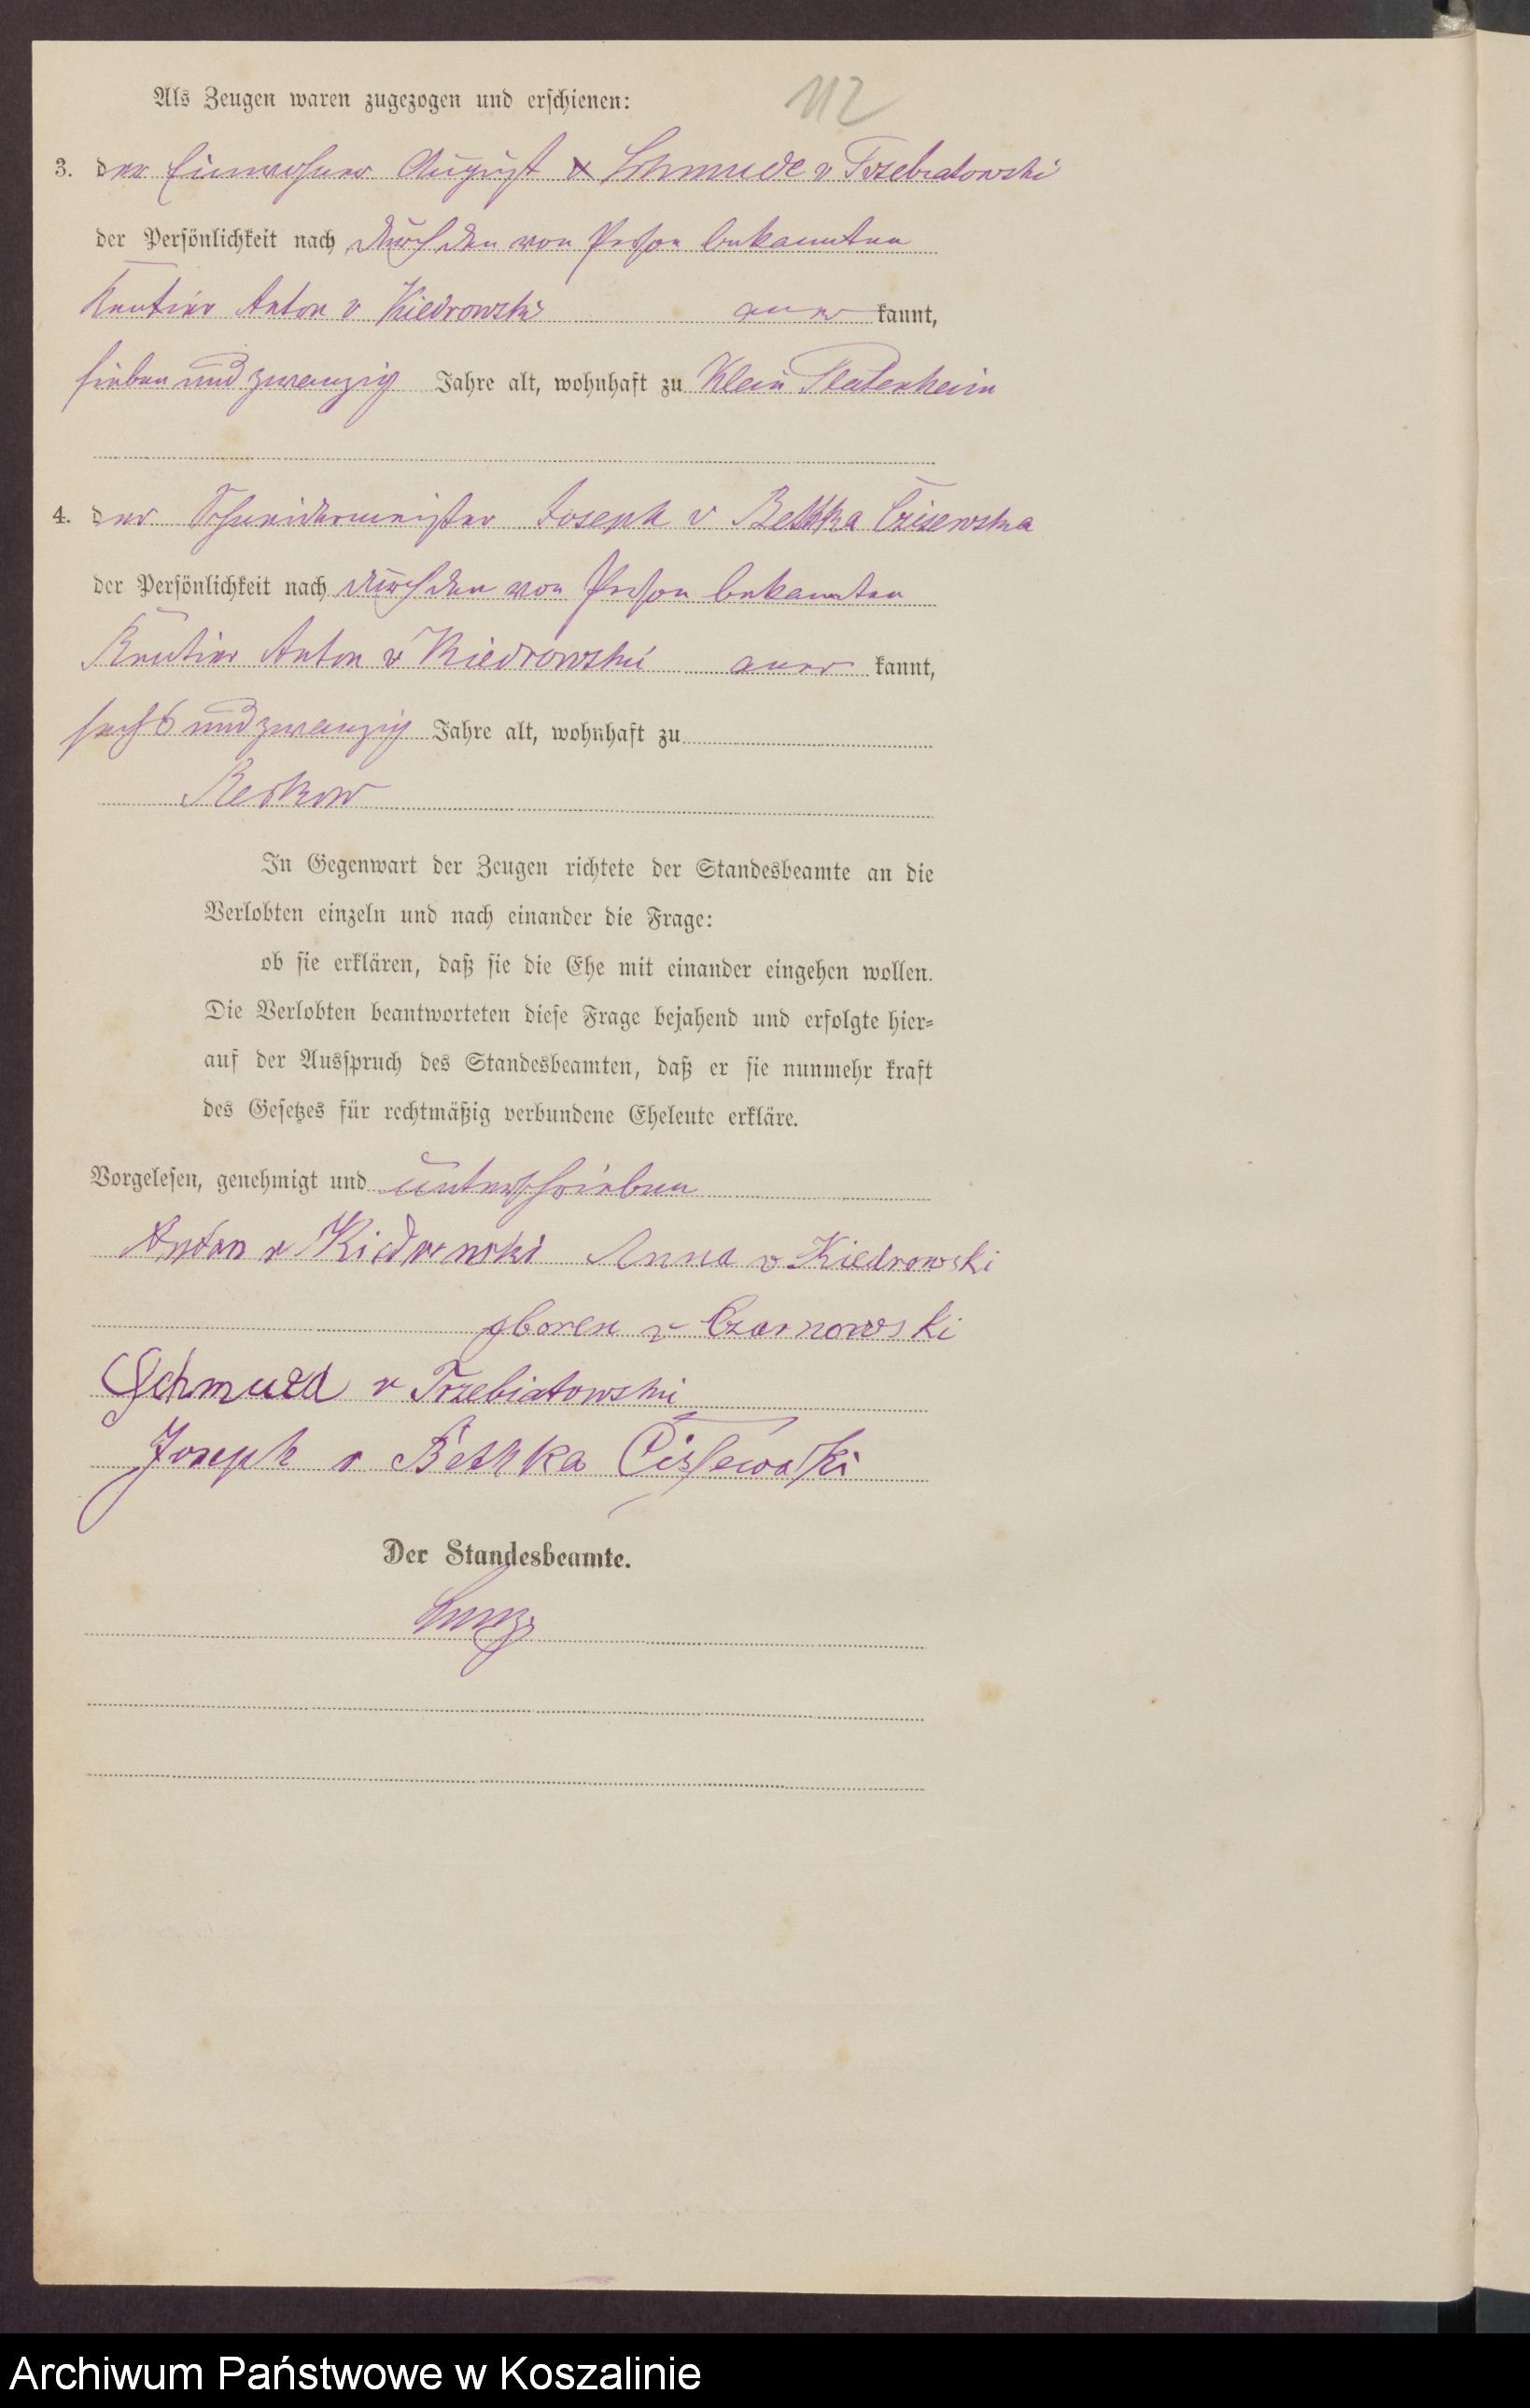 Als Zeugen waren zugezogen und erschienen:
112
3. der Einwohner August Schmude v Trzebiatowski
der Persönlichkeit nach durch den von Person bekannten
Rentier Anton v Kiedrowski aner kannt,
sieben und zwanzig Jahre alt, wohnhaft zu Klein Platenheim
4. der Schneidermeister Joseph v Bethka Czisewska
der Persönlichkeit nach durch den von Person bekannten
Rentier Anton v Kiedrowski aner kannt,
sechs und zwanzig Jahre alt, wohnhaft zu
Reckow
In Gegenwart der Zeugen richtete der Standesbeamte an die
Verlobten einzeln und nach einander die Frage:
ob sie erklären, daß sie die Ehe mit einander eingehen wollen.
Die Verlobten beantworteten diese Frage bejahend und erfolgte hier=
auf der Ausspruch des Standesbeamten, daß er sie nunmehr kraft
des Gesetzes für rechtmäßig verbundene Eheleute erkläre.
Vorgelesen, genehmigt und unterschrieben
Anton v Kiedrowski Anna v Kiedrowski
gboren v Czarnowski
Schmude v Trzebiatowski
Joseph v Bethka Cissewski
Der Standesbeamte.
Archiwum Państwowe w Koszalinie